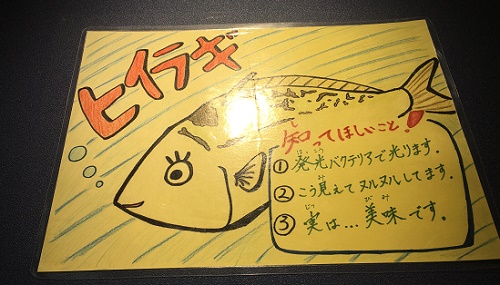 ヒイラギ
知ってほしいこと!
① 発光バクテリアで光ります。
② こう見えてヌルヌルしてます。
③ 実は…美味です。